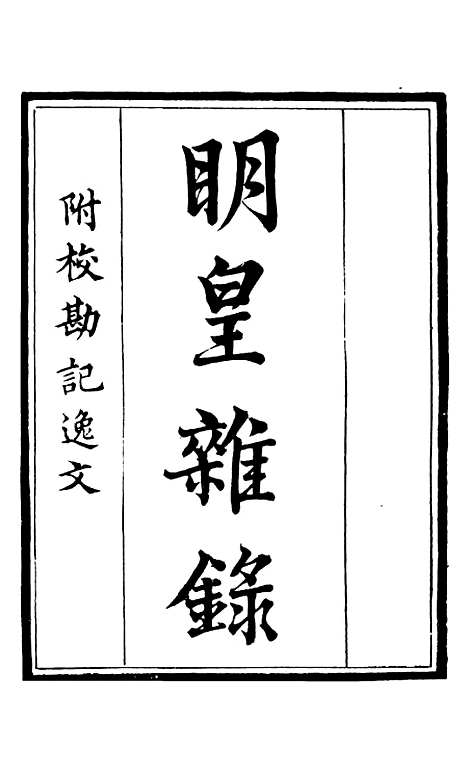 明皇雜錄
附校勘記逸文